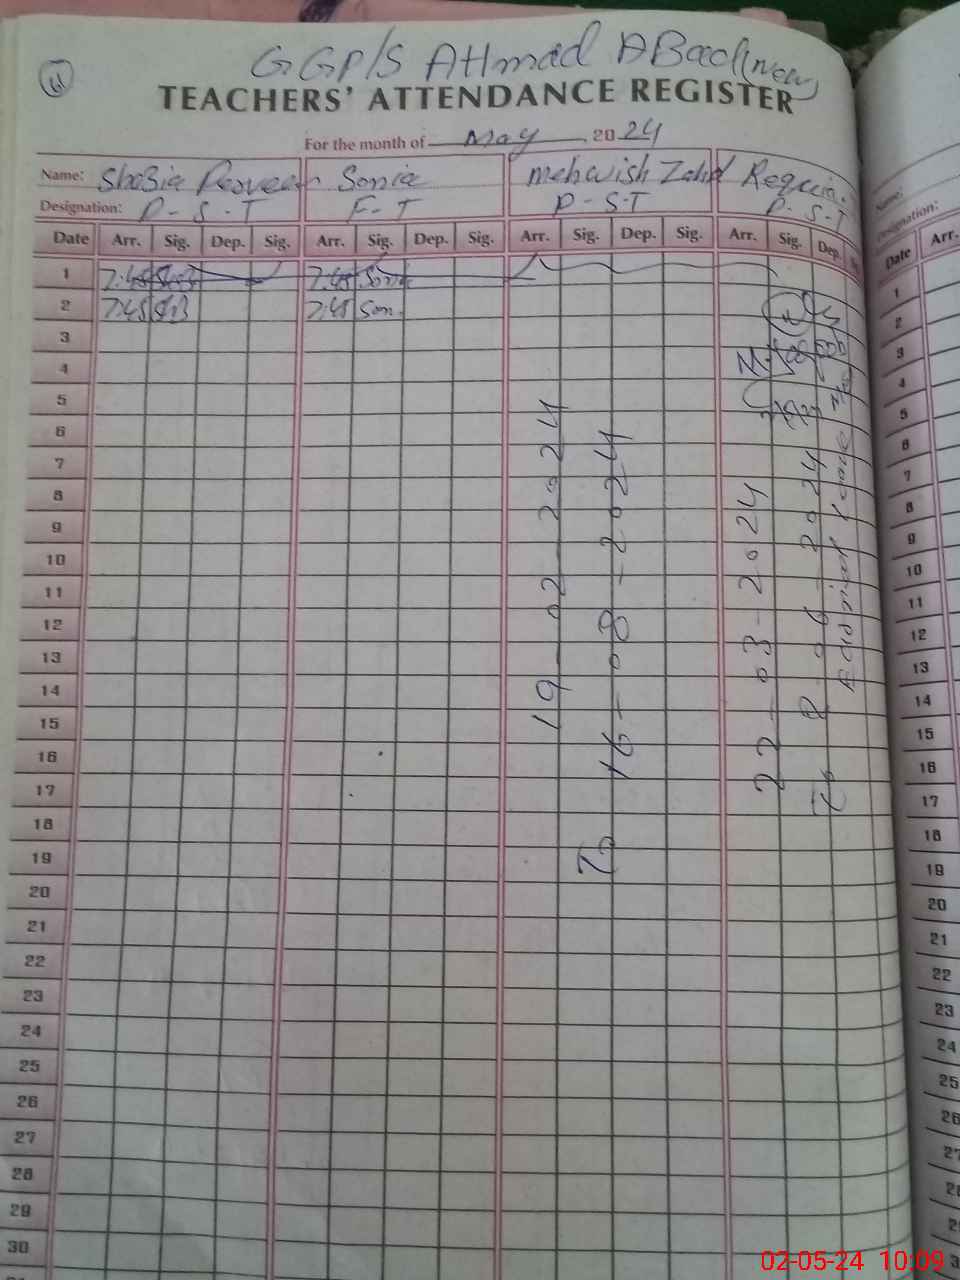 GGP/S AHmad ABad (new)
TEACHERS' ATTENDANCE REGISTER
For the month of May 2024
Name: Shazia Perveen Sonia mehwish Zahid Reqqia
Designation: P-S-T F-T P-S-T P-S-T
Date Arr. Sig. Dep. Sig. Arr. Sig. Dep. Sig. Arr. Sig. Dep. Sig. Arr. Sig. Dep.
1 7:45 7:45 Sonia
2 7:45 7:45 Son
3
4
5
6
7
8
9
10
11
12
13
14
15
16
17
18
19
20
21
22
23
24
25
26
27
28
29
30
19-02-2024
To 16-08-2024
22-03-2024
To 2-06-2024
leave
Name:
Designation:
Date Arr.
1
2
3
4
5
6
7
8
9
10
11
12
13
14
15
16
17
18
19
20
21
22
23
24
25
26
02-05-24 10:09